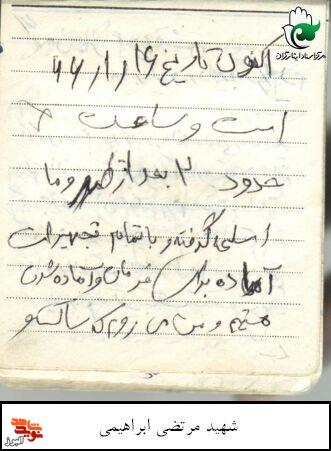 اکنون تاریخ ۱۶/۱/۶۶
است و ساعت
حدود ۲ بعد از ظهر و ما
اسلحه گرفته و با تمام تجهیزات
آماده برای فرمان و آماده شدن
هستیم و من می روم که ساکم و
شهید مرتضی ابراهیمی
مرکز اسناد ایثارگران
نوید شاهد
البرز